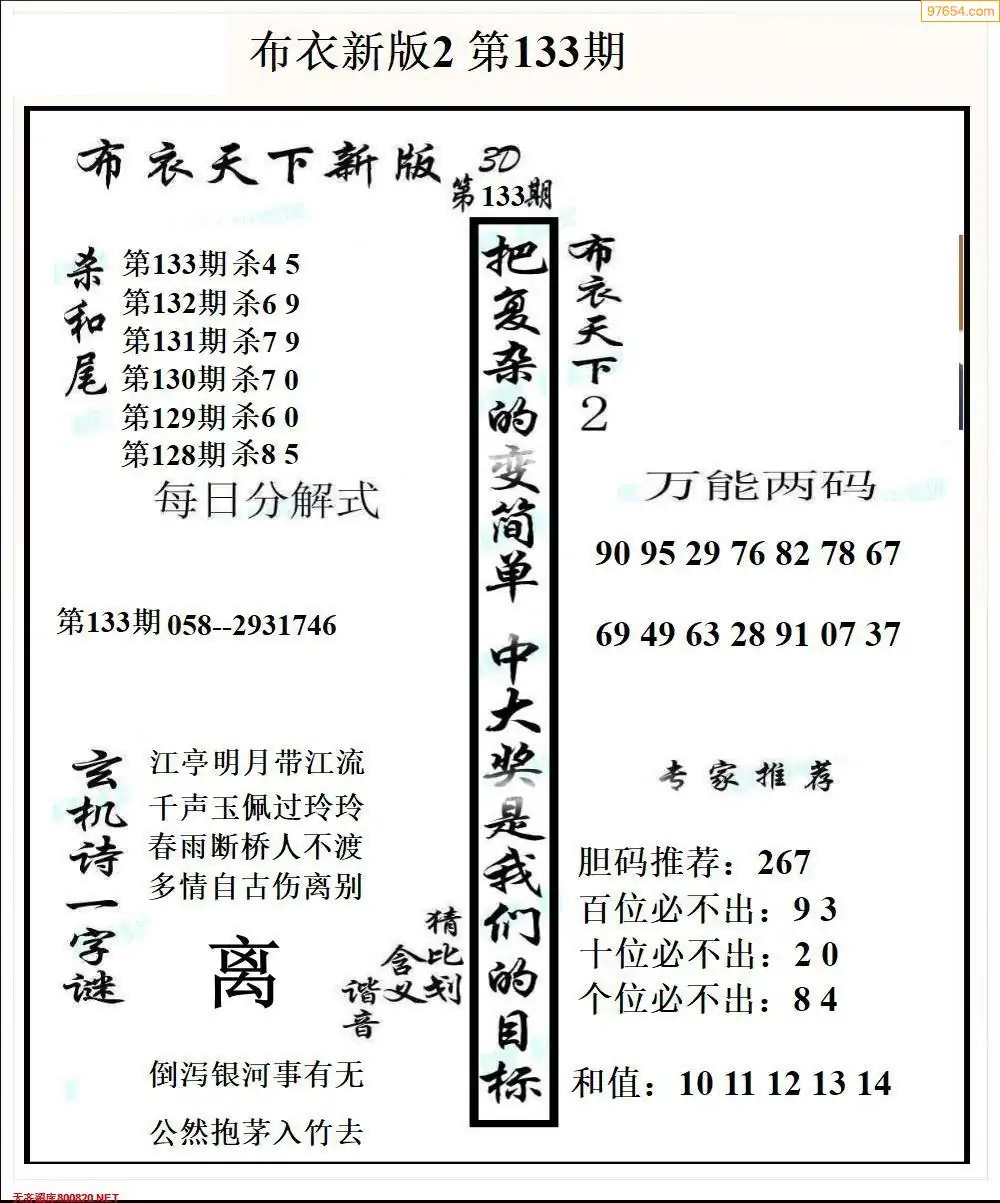 97654.com
布衣新版2 第133期
布衣天下新版 3D
第133期
杀和尾
第133期 杀4 5
第132期 杀6 9
第131期 杀7 9
第130期 杀7 0
第129期 杀6 0
第128期 杀8 5
每日分解式
第133期 058--2931746
玄机诗一字谜
江亭明月带江流
千声玉佩过玲玲
春雨断桥人不渡
多情自古伤离别
离
猜比划
含义
谐音
倒泻银河事有无
公然抱茅入竹去
把复杂的变简单 中大奖是我们的目标
布衣天下2
万能两码
90 95 29 76 82 78 67
69 49 63 28 91 07 37
专家推荐
胆码推荐：267
百位必不出：9 3
十位必不出：2 0
个位必不出：8 4
和值：10 11 12 13 14
天齐图库800820.NET